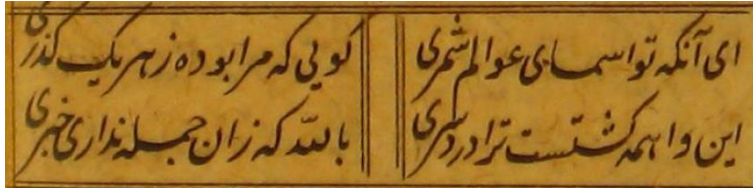 ای آنکه تو اسمای عوالم شمری
گویی که مرا بوده ز هر یک گذری
این واهمه گشتست ترا دردسری
بالله که زان جمله نداری خبری